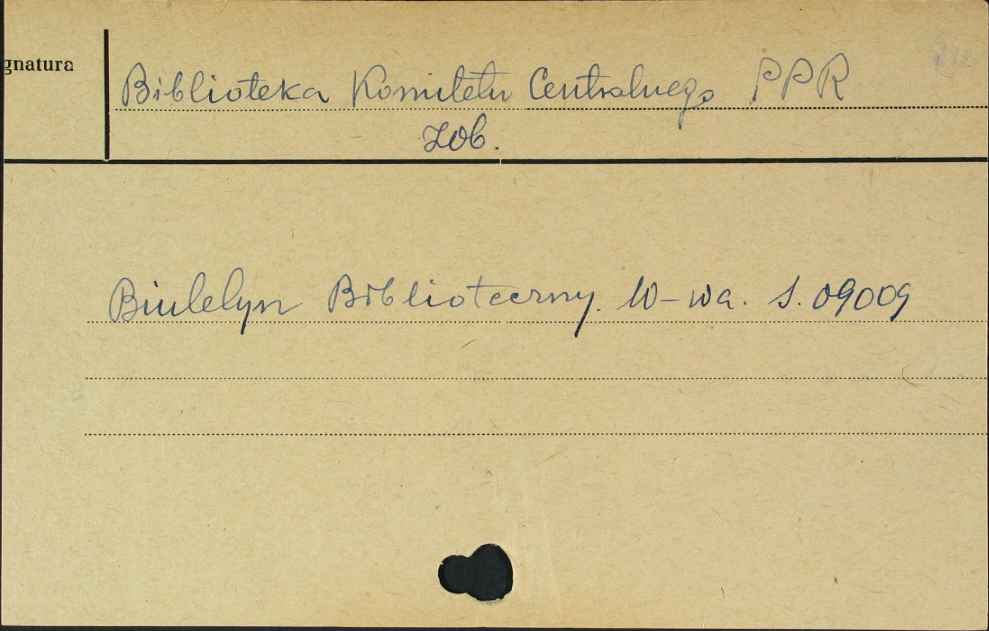 gnatura
Biblioteka Komitetu Centralnego PPR
zob.
Biuletyn Biblioteczny. W-wa. S. 09009